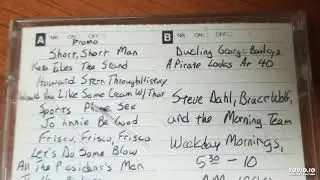 A NR ON □ OFF □
Promo
Short, Short Man
Kato Eles The Stand
Howard Stern Through History
Would You Like Some Cream W/ That
Sports Phone Sex
To Annie Be Good
Frisco, Frisco, Frisco
Let's Do Some Blow
All The President's Men
B NR ON □ OFF □
Dueling George Baileys
A Pirate Looks At 40
Steve Dahl, Bruce Wolf,
and the Morning Team
Weekday Mornings,
5:30 - 10
TOVID.IO